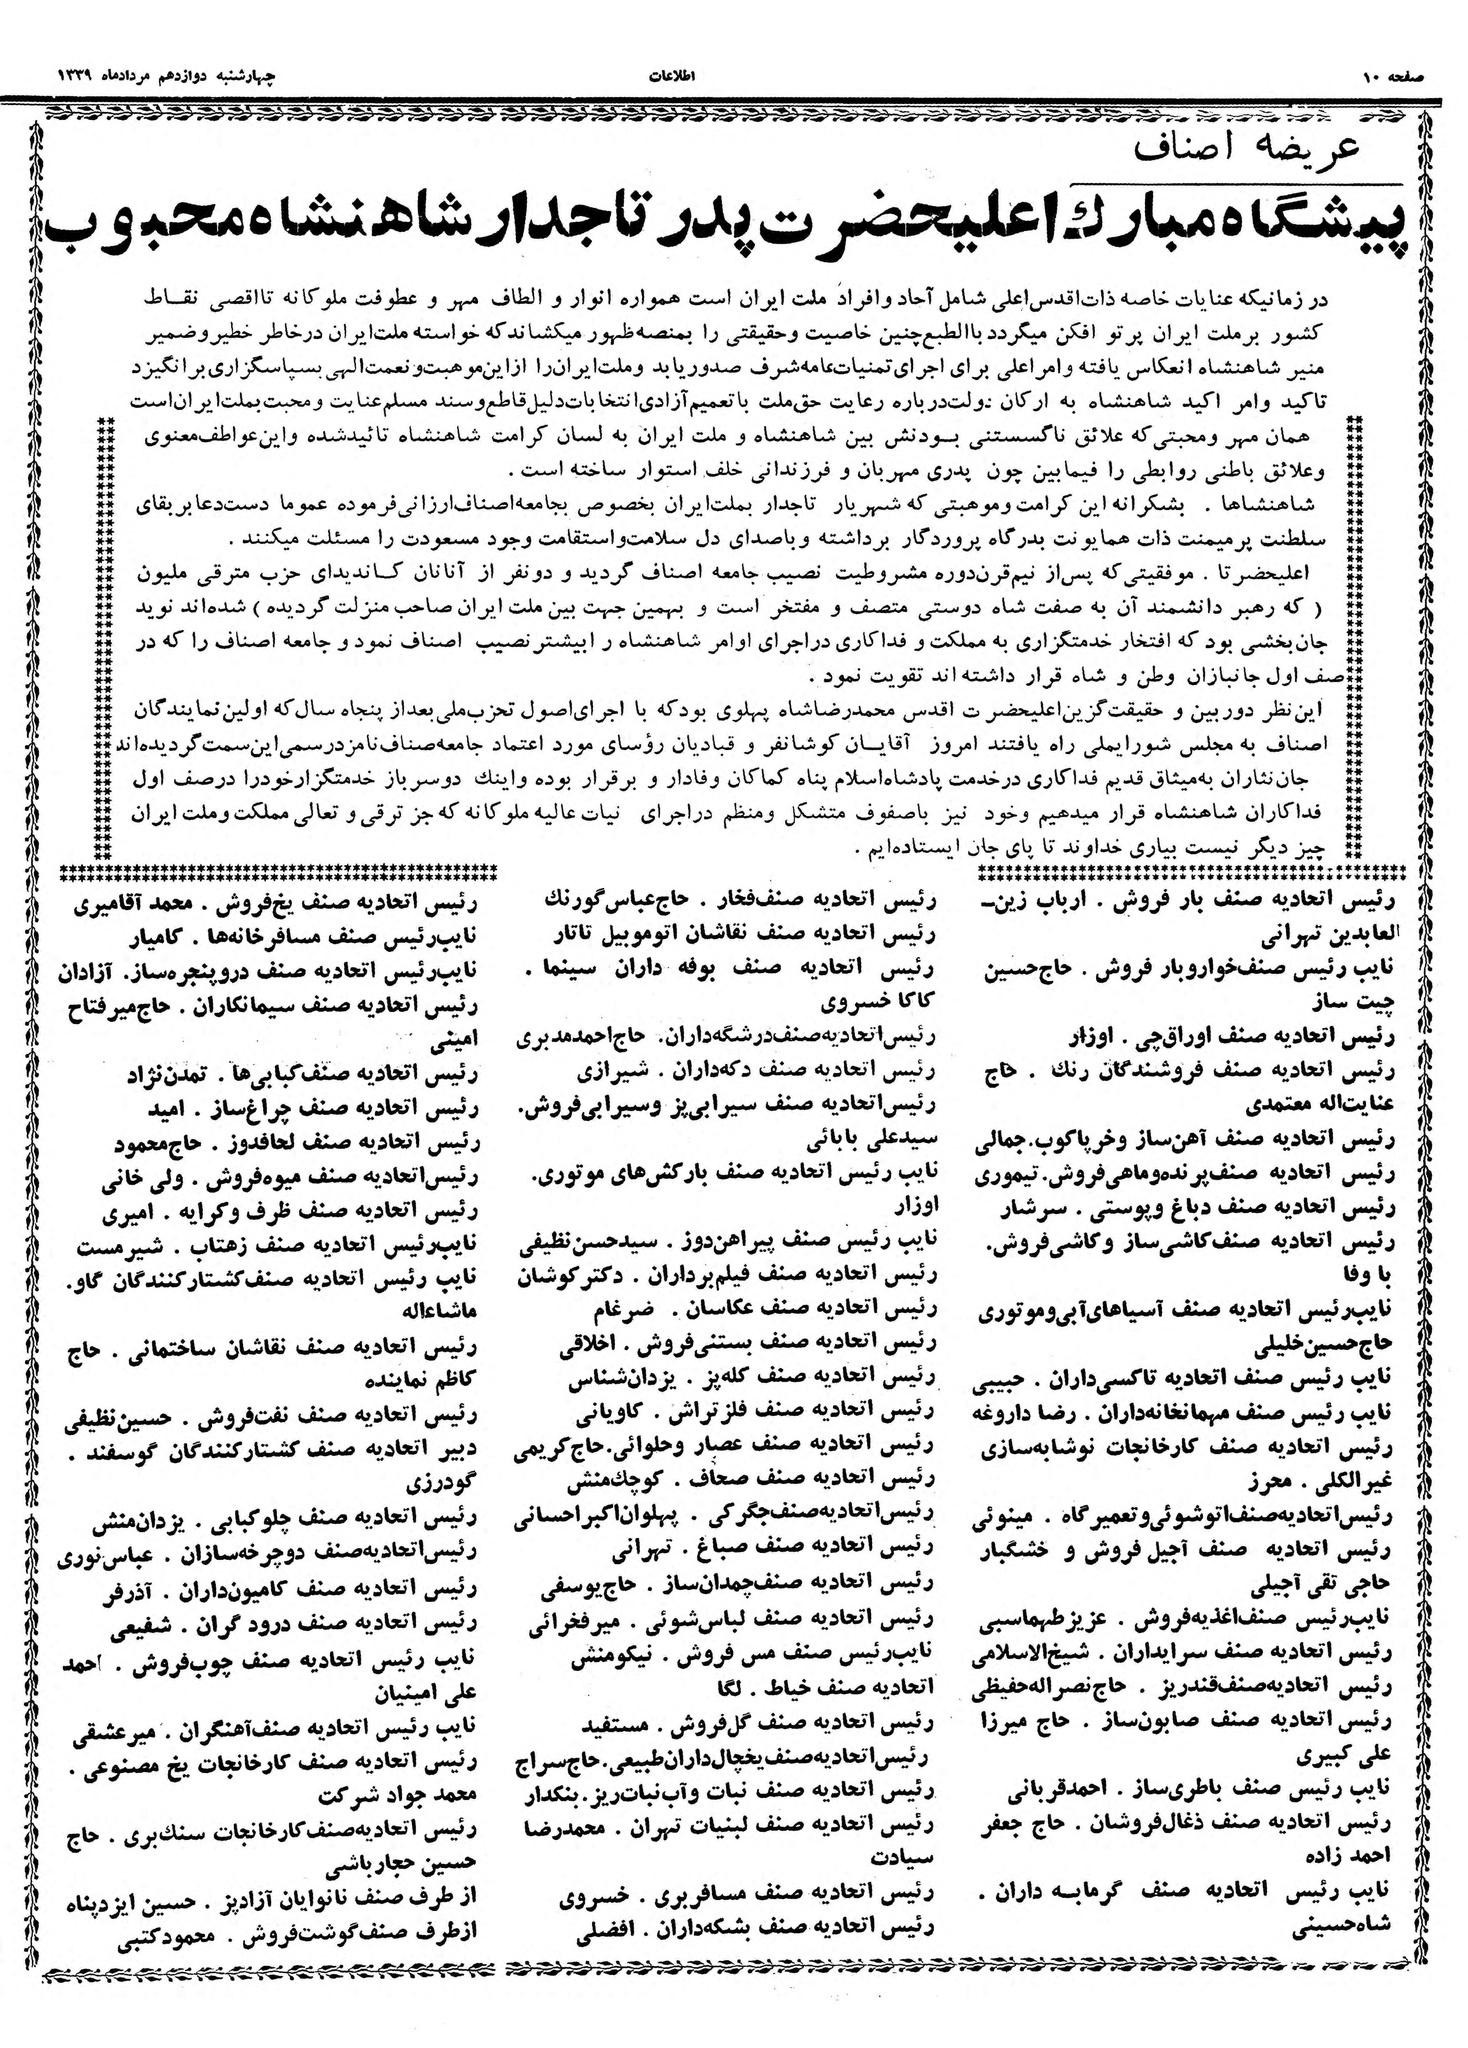 صفحه ۱۰
اطلاعات
چهارشنبه دوازدهم مردادماه ۱۳۳۹
عریضه اصناف
پیشگاه مبارك اعلیحضرت پدر تاجدار شاهنشاه محبوب
در زمانیکه عنایات خاصه ذات اقدس اعلی شامل آحاد و افراد ملت ایران است همواره انوار و الطاف مهر و عطوفت ملوکانه تا اقصی نقاط
کشور بر ملت ایران پرتو افکن میگردد با الطبع چنین خاصیت و حقیقتی را بمنصه ظهور میکشاند که خواسته ملت ایران در خاطر خطیر و ضمیر
منیر شاهنشاه انعکاس یافته و امر اعلی برای اجرای تمنیات عامه شرف صدور یابد و ملت ایران را از این موهبت و نعمت الهی بسپاسگزاری برانگیزد
تاکید و امر اکید شاهنشاه به ارکان دولت درباره رعایت حق ملت با تعمیم آزادی انتخابات دلیل قاطع و سند مسلم عنایت و محبت بملت ایران است
همان مهر و محبتی که علائق ناگسستنی بودنش بین شاهنشاه و ملت ایران به لسان کرامت شاهنشاه تائید شده و این عواطف معنوی
و علائق باطنی روابطی را فیمابین چون پدری مهربان و فرزندانی خلف استوار ساخته است .
شاهنشاها . بشکرانه این کرامت و موهبتی که شهریار تاجدار بملت ایران بخصوص بجامعه اصناف ارزانی فرموده عموما دست دعا بر بقای
سلطنت پر میمنت ذات همایونت بدرگاه پروردگار برداشته و باصدای دل سلامت و استقامت وجود مسعودت را مسئلت میکنند .
اعلیحضرتا . موفقیتی که پس از نیم قرن دوره مشروطیت نصیب جامعه اصناف گردید و دو نفر از آنانان کاندیدای حزب مترقی ملیون
( که رهبر دانشمند آن به صفت شاه دوستی متصف و مفتخر است و بهمین جهت بین ملت ایران صاحب منزلت گردیده ) شده اند نوید
جان بخشی بود که افتخار خدمتگزاری به مملکت و فداکاری در اجرای اوامر شاهنشاه را بیشتر نصیب اصناف نمود و جامعه اصناف را که در
صف اول جانبازان وطن و شاه قرار داشته اند تقویت نمود .
این نظر دوربین و حقیقت گزین اعلیحضرت اقدس محمدرضا شاه پهلوی بود که با اجرای اصول تحزب ملی بعد از پنجاه سال که اولین نمایندگان
اصناف به مجلس شورایملی راه یافتند امروز آقایان کوشانفر و قبادیان رؤسای مورد اعتماد جامعه صناف نامزد رسمی این سمت گردیده اند
جان نثاران به میثاق قدیم فداکاری در خدمت پادشاه اسلام پناه کماکان وفادار و برقرار بوده و اینك دو سرباز خدمتگزار خود را در صف اول
فداکاران شاهنشاه قرار میدهیم وخود نیز باصفوف متشکل و منظم در اجرای نیات عالیه ملوکانه که جز ترقی و تعالی مملکت و ملت ایران
چیز دیگر نیست بیاری خداوند تا پای جان ایستاده ایم .
رئیس اتحادیه صنف بار فروش . ارباب زین‌ـ
العابدین تهرانی
نایب رئیس صنف خواروبار فروش . حاج حسین
چیت ساز
رئیس اتحادیه صنف اوراق چی . اوزار
رئیس اتحادیه صنف فروشندگان رنك . حاج
عنایت اله معتمدی
رئیس اتحادیه صنف آهن ساز و خرپاکوب . جمالی
رئیس اتحادیه صنف پرنده و ماهی فروش . تیموری
رئیس اتحادیه صنف دباغ و پوستی . سرشار
رئیس اتحادیه صنف کاشی ساز و کاشی فروش .
با وفا
نایب رئیس اتحادیه صنف آسیاهای آبی و موتوری
حاج حسین خلیلی
نایب رئیس صنف اتحادیه تاکسی داران . حبیبی
نایب رئیس صنف مهمانخانه داران . رضا داروغه
رئیس اتحادیه صنف کارخانجات نوشابه سازی
غیر الکلی . محرز
رئیس اتحادیه صنف اتوشوئی و تعمیر گاه . مینوئی
رئیس اتحادیه صنف آجیل فروش و خشگبار
حاجی تقی آجیلی
نایب رئیس صنف اغذیه فروش . عزیز طهماسبی
رئیس اتحادیه صنف سرایداران . شیخ الاسلامی
رئیس اتحادیه صنف قندریز . حاج نصراله حفیظی
رئیس اتحادیه صنف صابون ساز . حاج میرزا
علی کبیری
نایب رئیس صنف باطری ساز . احمد قربانی
رئیس اتحادیه صنف ذغال فروشان . حاج جعفر
احمد زاده
نایب رئیس اتحادیه صنف گرمابه داران .
شاه حسینی
رئیس اتحادیه صنف فخار . حاج عباس گورنك
رئیس اتحادیه صنف نقاشان اتوموبیل تاتار
رئیس اتحادیه صنف بوفه داران سینما .
کاکا خسروی
رئیس اتحادیه صنف درشگه داران . حاج احمد مدبری
رئیس اتحادیه صنف دکه داران . شیرازی
رئیس اتحادیه صنف سیرابی پز و سیرابی فروش .
سید علی بابائی
نایب رئیس اتحادیه صنف بارکش های موتوری .
اوزار
نایب رئیس صنف پیراهن دوز . سید حسن نظیفی
رئیس اتحادیه صنف فیلم برداران . دکتر کوشان
رئیس اتحادیه صنف عکاسان . ضرغام
رئیس اتحادیه صنف بستنی فروش . اخلاقی
رئیس اتحادیه صنف کله پز . یزدان شناس
رئیس اتحادیه صنف فلز تراش . کاویانی
رئیس اتحادیه صنف عصار و حلوائی . حاج کریمی
رئیس اتحادیه صنف صحاف . کوچك منش
رئیس اتحادیه صنف جگرکی . پهلوان اکبر احسانی
رئیس اتحادیه صنف صباغ . تهرانی
رئیس اتحادیه صنف چمدان ساز . حاج یوسفی
رئیس اتحادیه صنف لباس شوئی . میرفخرائی
نایب رئیس صنف مس فروش . نیکومنش
اتحادیه صنف خیاط . لگا
رئیس اتحادیه صنف گل فروش . مستفید
رئیس اتحادیه صنف یخچال داران طبیعی . حاج سراج
رئیس اتحادیه صنف نبات و آب نبات ریز . بنکدار
رئیس اتحادیه صنف لبنیات تهران . محمدرضا
سیادت
رئیس اتحادیه صنف مسافربری . خسروی
رئیس اتحادیه صنف بشکه داران . افضلی
رئیس اتحادیه صنف یخ فروش . محمد آقامیری
نایب رئیس صنف مسافر خانه ها . کامیار
نایب رئیس اتحادیه صنف در و پنجره ساز . آزادان
رئیس اتحادیه صنف سیمانکاران . حاج میر فتاح
امینی
رئیس اتحادیه صنف کبابی ها . تمدن نژاد
رئیس اتحادیه صنف چراغ ساز . امید
رئیس اتحادیه صنف لحافدوز . حاج محمود
رئیس اتحادیه صنف میوه فروش . ولی خانی
رئیس اتحادیه صنف ظرف و کرایه . امیری
نایب رئیس اتحادیه صنف زهتاب . شیرمست
نایب رئیس اتحادیه صنف کشتار کنندگان گاو .
ماشاءاله
رئیس اتحادیه صنف نقاشان ساختمانی . حاج
کاظم نماینده
رئیس اتحادیه صنف نفت فروش . حسین نظیفی
دبیر اتحادیه صنف کشتار کنندگان گوسفند .
گودرزی
رئیس اتحادیه صنف چلوکبابی . یزدان منش
رئیس اتحادیه صنف دوچرخه سازان . عباس نوری
رئیس اتحادیه صنف کامیون داران . آذرفر
رئیس اتحادیه صنف درود گران . شفیعی
نایب رئیس اتحادیه صنف چوب فروش . احمد
علی امینیان
نایب رئیس اتحادیه صنف آهنگران . میرعشقی
رئیس اتحادیه صنف کارخانجات یخ مصنوعی .
محمد جواد شرکت
رئیس اتحادیه صنف کارخانجات سنك بری . حاج
حسین حجار باشی
از طرف صنف نانوایان آزادپز . حسین ایزدپناه
از طرف صنف گوشت فروش . محمود کتبی